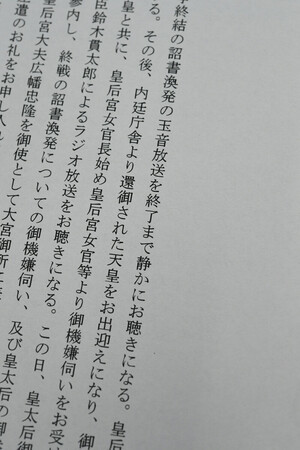 争終結の詔書渙発の玉音放送を終了まで静かにお聴きになる。皇后
る。その後、内廷庁舎より還御された天皇をお出迎えになり、御
皇と共に、皇后宮女官長始め皇后宮女官等より御機嫌伺いをお受け
臣鈴木貫太郎によるラジオ放送をお聴きになる。この日、皇太后御
参内し、終戦の詔書渙発についての御機嫌伺い、及び皇太后の御
皇后宮大夫広幡忠隆を御使として大宮御所に
差遣のお礼をお申し入れ